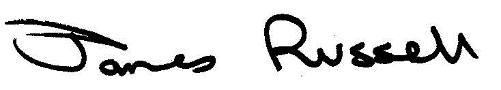 James Russell